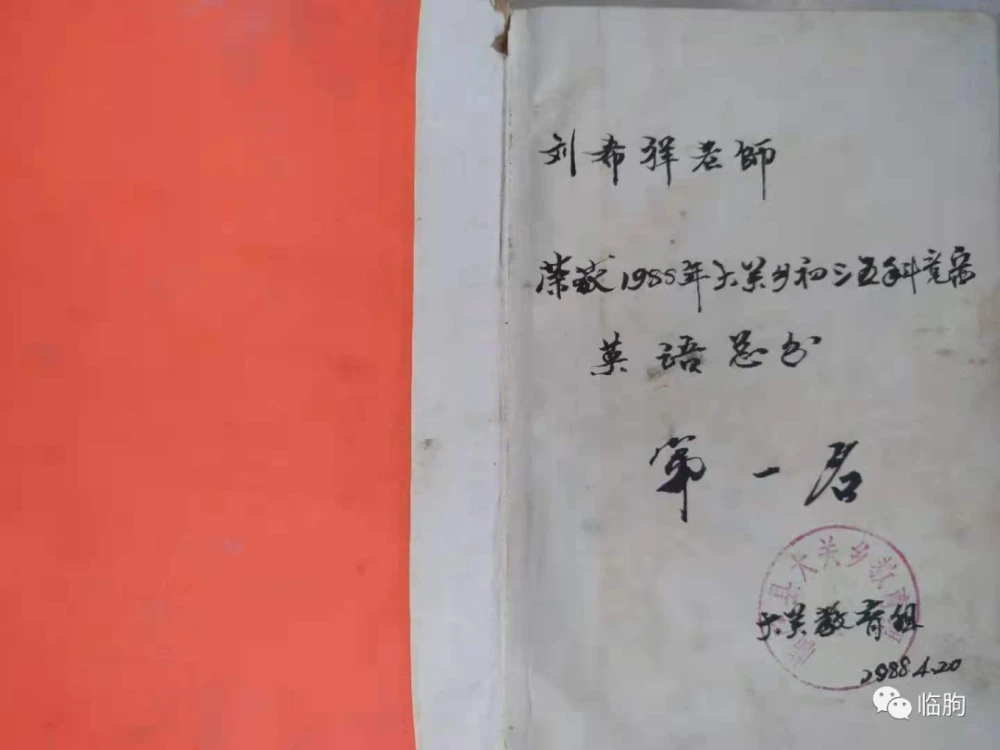 刘希祥老師
荣获1988年大关乡初三五科竞赛
英语总分
第一名
县大关乡教育组
大关教育组
1988.4.20
临朐